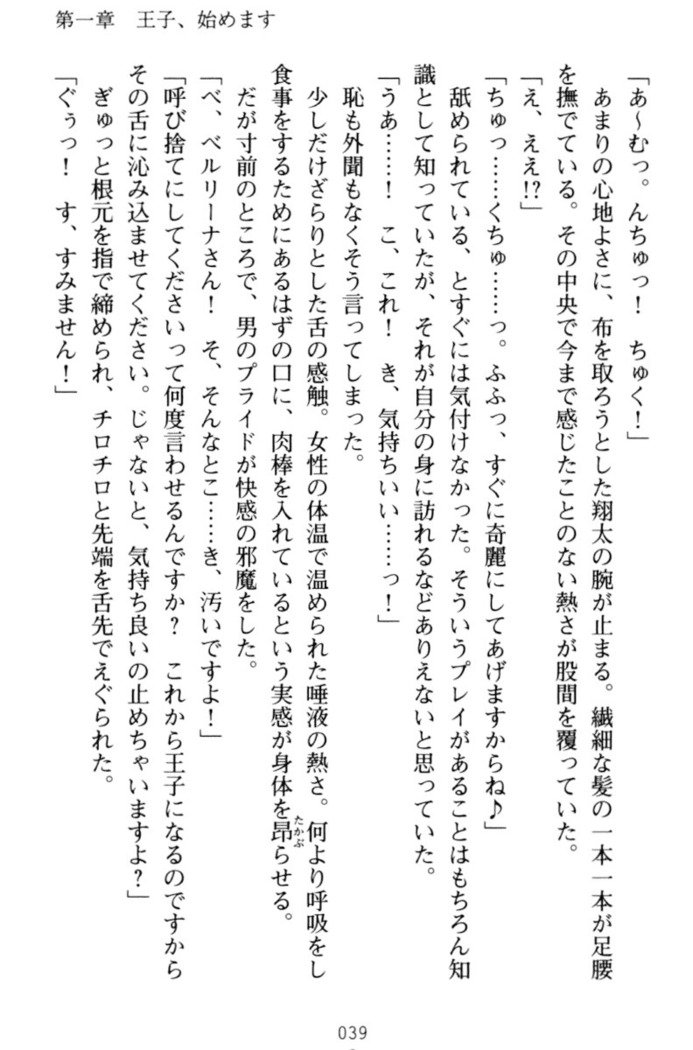 第一章　王子、始めます
「あ～むっ。んちゅっ！　ちゅく！」
あまりの心地よさに、布を取ろうとした翔太の腕が止まる。繊細な髪の一本一本が足腰
を撫でている。その中央で今まで感じたことのない熱さが股間を覆っていた。
「え、ええ!?」
「ちゅっ……くちゅ……っ。ふふっ、すぐに奇麗にしてあげますからね♪」
舐められている、とすぐには気付けなかった。そういうプレイがあることはもちろん知
識として知っていたが、それが自分の身に訪れるなどありえないと思っていた。
「うあ……！　こ、これ！　き、気持ちいい……っ！」
恥も外聞もなくそう言ってしまった。
少しだけざらりとした舌の感触。女性の体温で温められた唾液の熱さ。何より呼吸をし
食事をするためにあるはずの口に、肉棒を入れているという実感が身体を昂らせる。
たかぶ
だが寸前のところで、男のプライドが快感の邪魔をした。
「べ、ベルリーナさん！　そ、そんなとこ……き、汚いですよ！」
「呼び捨てにしてくださいって何度言わせるんですか？　これから王子になるのですから
その舌に沁み込ませてください。じゃないと、気持ち良いの止めちゃいますよ？」
ぎゅっと根元を指で締められ、チロチロと先端を舌先でえぐられた。
「ぐぅっ！　す、すみません！」
039